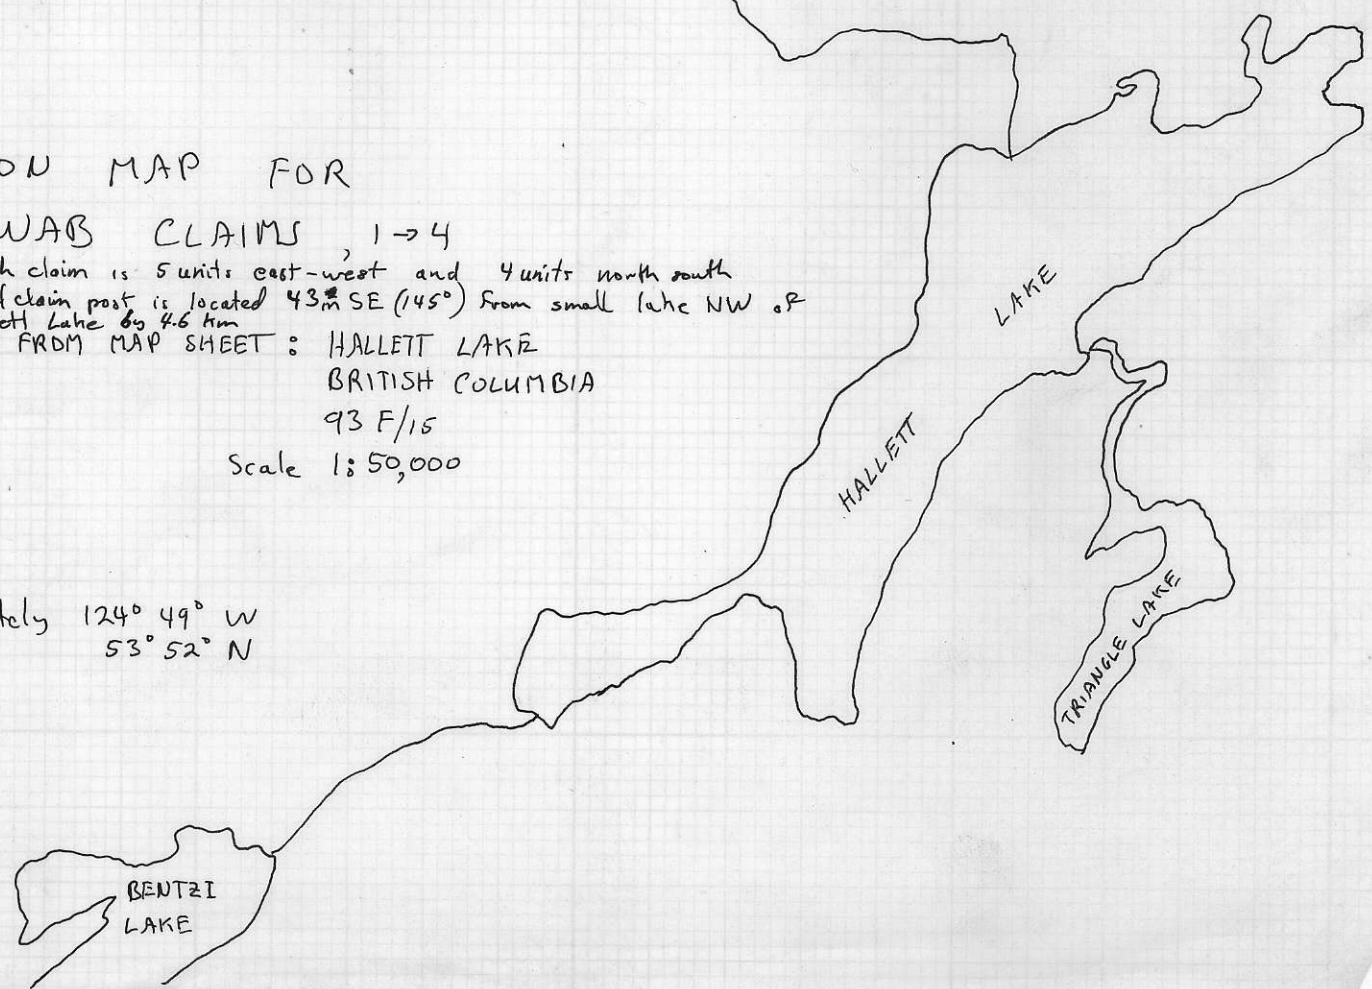 ON MAP FOR
WAB CLAIMS, 1→4
h claim is 5 units east-west and 4 units north south
claim post is located 43m SE (145°) from small lake NW of
ett Lake by 4.6 km
FROM MAP SHEET : HALLETT LAKE
BRITISH COLUMBIA
93 F/15
Scale 1: 50,000
LAKE
HALLETT
tely 124° 49° W
53° 52° N
TRIANGLE LAKE
BENTZI
LAKE